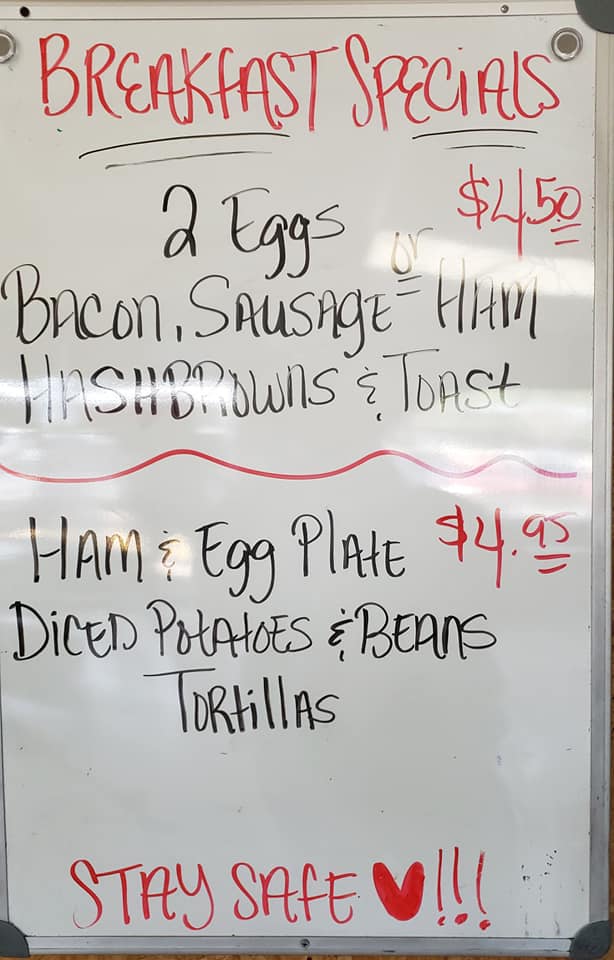 BREAKFAST SPECIALS
2 Eggs $4.50
BACON, SAUSAGE or HAM
HASHBROWNS & TOAST
HAM & Egg PLATE $4.95
DICED POTATOES & BEANS
TORTillAS
STAY SAFE ♥!!!